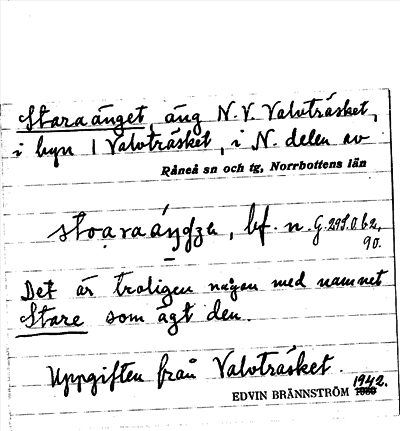 Staraänget, äng N.V. Valvträsket,
i byn 1 Valvträsket, i N. delen av
Råneå sn och tg, Norrbottens län
bf. n.
90.
Det är troligen någon med namnet
Stare som ägt den.
Uppgiften från Valvträsket.
EDVIN BRÄNNSTRÖM 1942.